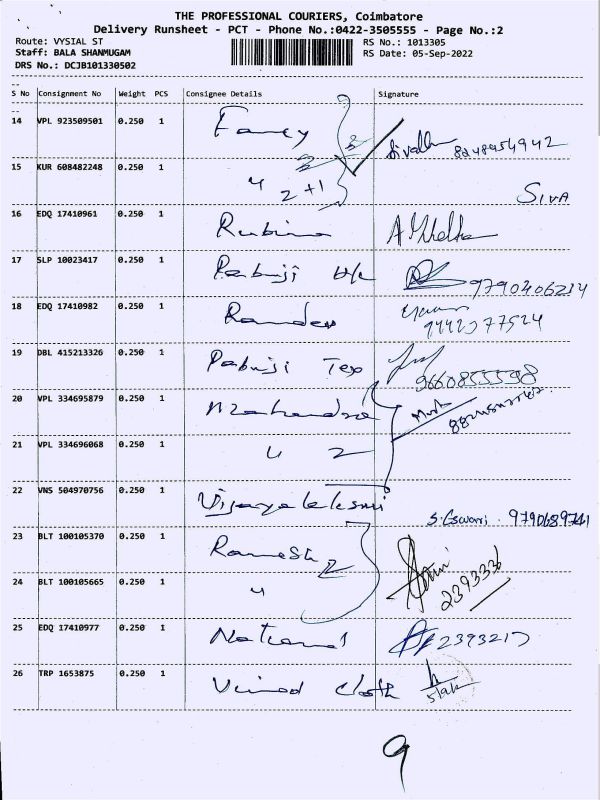 THE PROFESSIONAL COURIERS, Coimbatore
Delivery Runsheet - PCT - Phone No.:0422-3505555 - Page No.:2
Route: VYSIAL ST
RS No.: 1013305
Staff: BALA SHANMUGAM
RS Date: 05-Sep-2022
DRS No.: DCJB101330502
S No Consignment No Weight PCS Consignee Details Signature
14 VPL 923509501 0.250 1 Fancy
15 KUR 608482248 0.250 1 " 2+1 SIVA
16 EDQ 17410961 0.250 1 Rubino
17 SLP 10023417 0.250 1 Pabuji 9790406214
18 EDQ 17410982 0.250 1 Ramdev 9442377524
19 DBL 415213326 0.250 1 Pabuji Tex 9660855598
20 VPL 334695879 0.250 1 Mahendra
21 VPL 334696068 0.250 1 " 2
22 VNS 504970756 0.250 1 Vijayalakshmi
23 BLT 100105370 0.250 1 Ramesh 2
24 BLT 100105665 0.250 1 " 2393336
25 EDQ 17410977 0.250 1 National 2393217
26 TRP 1653875 0.250 1 Vinod Cloth
9